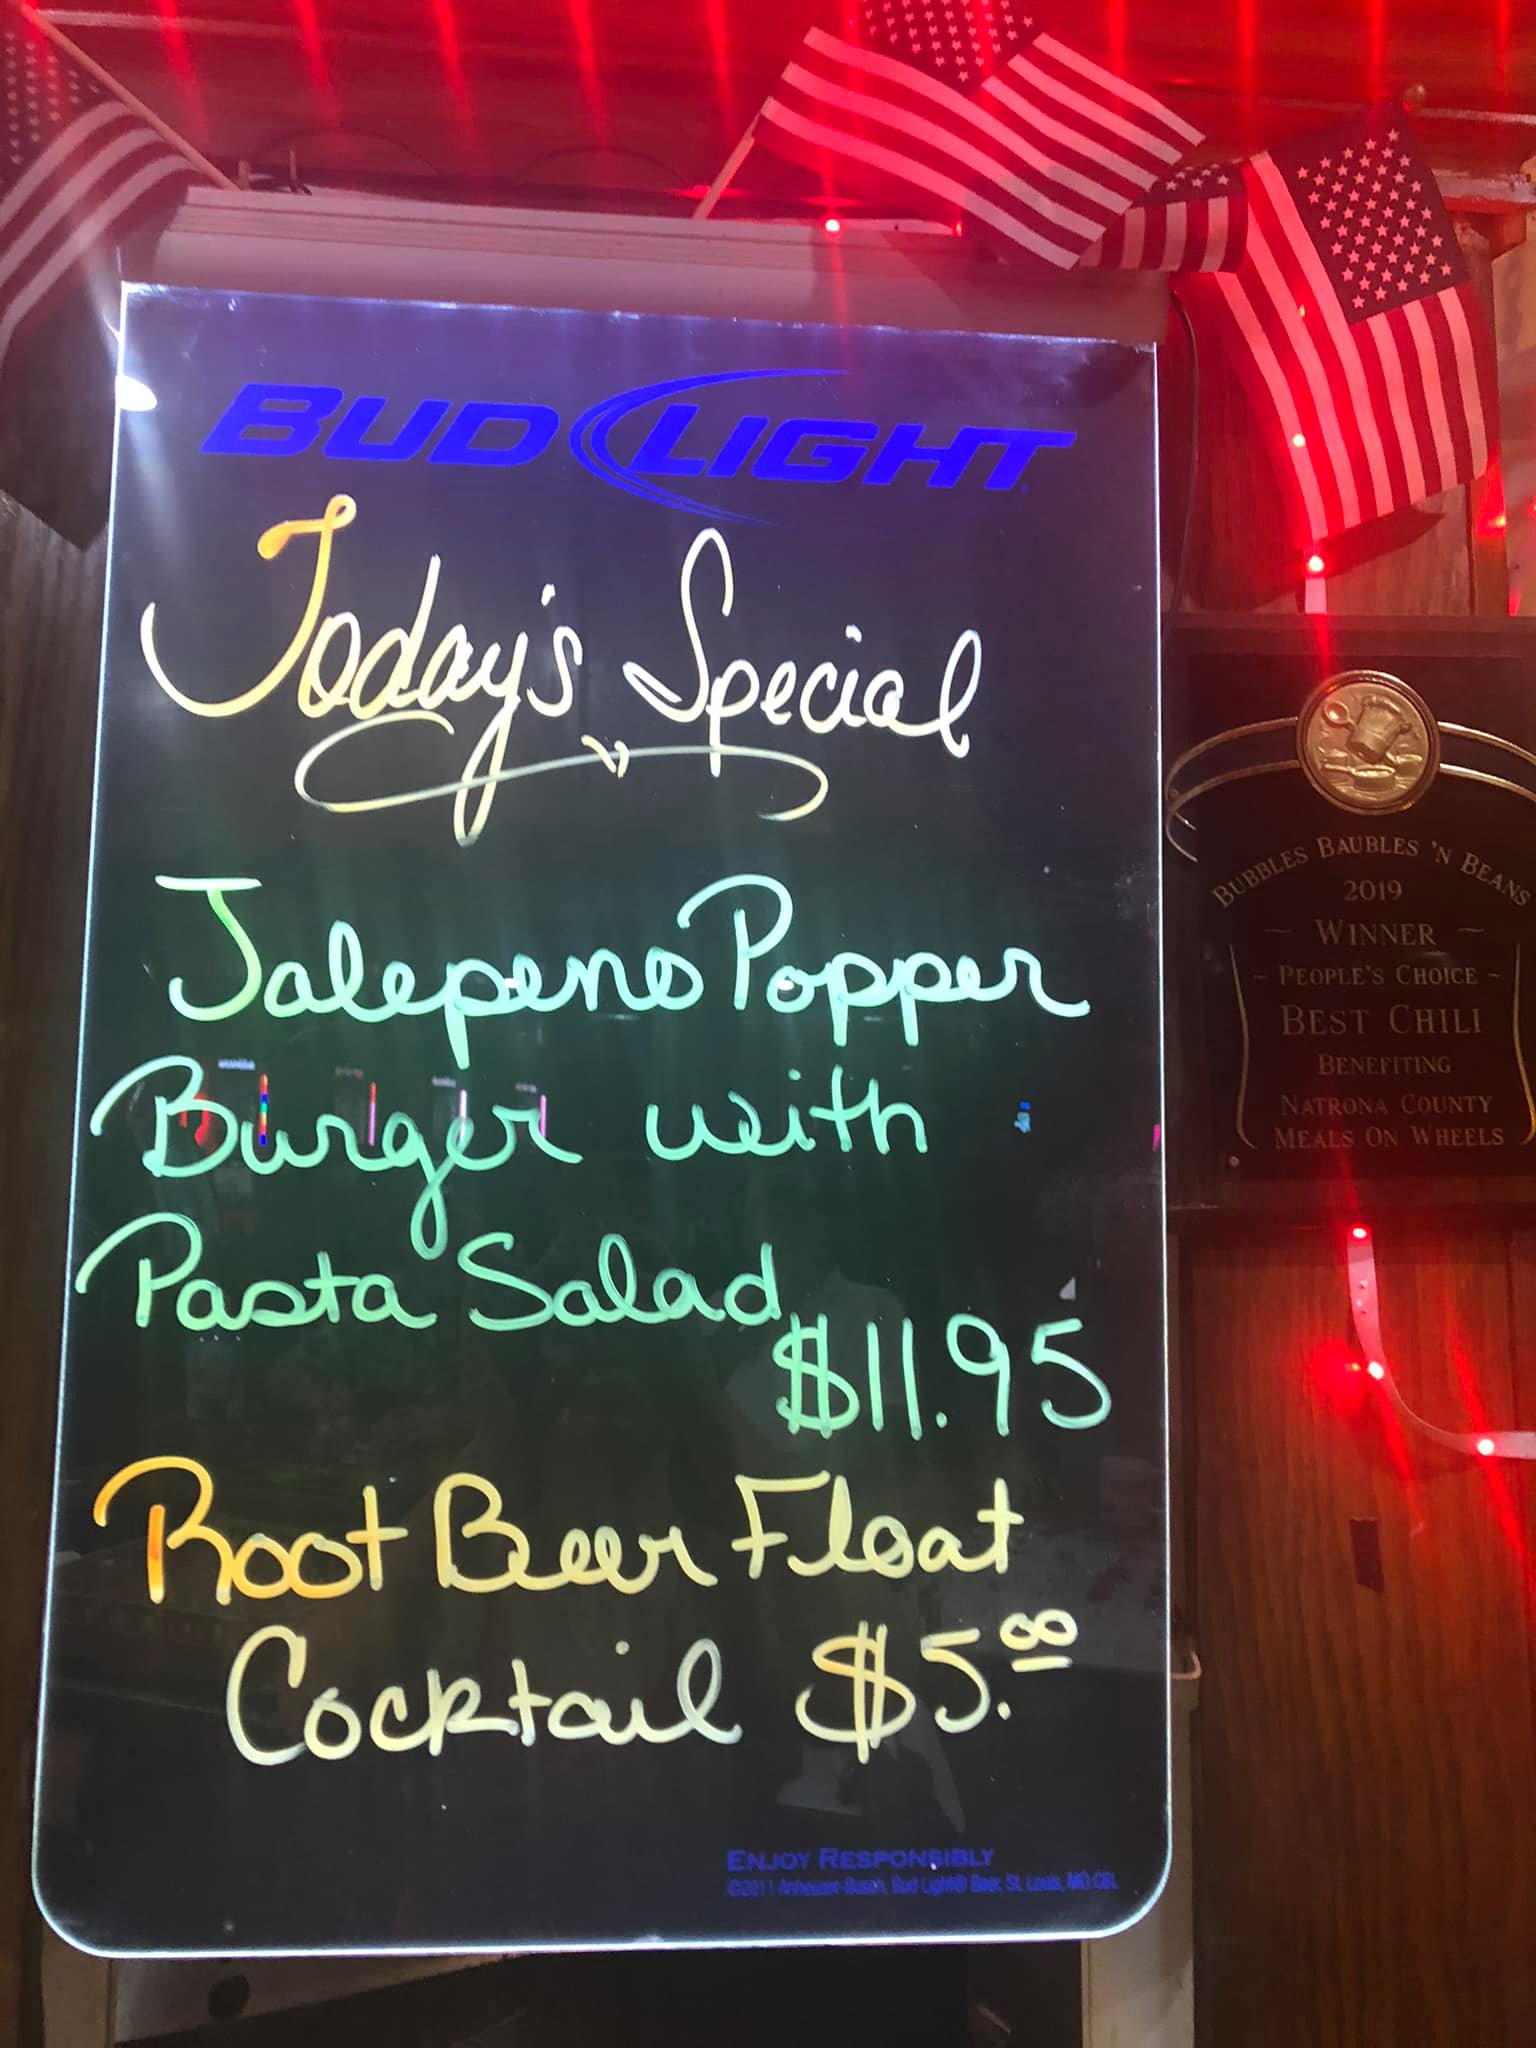 BUD LIGHT
Today's Special
Jalepeno Popper
Burger with
Pasta Salad
$11.95
Root Beer Float
Cocktail $5.00
ENJOY RESPONSIBLY
©2011 Anheuser-Busch, Bud Light® Beer, St. Louis, MO
BUBBLES BAUBLES 'N BEANS
2019
– WINNER –
– PEOPLE'S CHOICE –
BEST CHILI
BENEFITING
NATRONA COUNTY
MEALS ON WHEELS